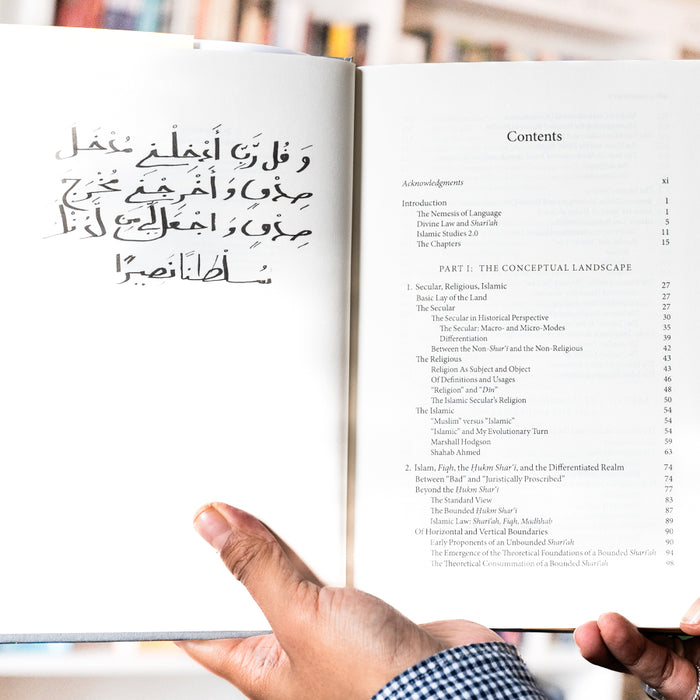 وَ قُل رَّبِّ أَدْخِلْنِي مُدْخَلَ
صِدْقٍ وَ أَخْرِجْنِي مُخْرَجَ
صِدْقٍ وَ اجْعَل لِّي مِن لَّدُنْكَ
سُلْطَانًا نَصِيرًا
Contents
Acknowledgments xi
Introduction 1
The Nemesis of Language 1
Divine Law and Sharī‘ah 5
Islamic Studies 2.0 11
The Chapters 15
PART I: THE CONCEPTUAL LANDSCAPE
1. Secular, Religious, Islamic 27
Basic Lay of the Land 27
The Secular 27
The Secular in Historical Perspective 30
The Secular: Macro- and Micro-Modes 35
Differentiation 39
Between the Non-Shar‘ī and the Non-Religious 42
The Religious 43
Religion As Subject and Object 43
Of Definitions and Usages 46
"Religion" and "Dīn" 48
The Islamic Secular's Religion 50
The Islamic 54
"Muslim" versus "Islamic" 54
"Islamic" and My Evolutionary Turn 54
Marshall Hodgson 59
Shahab Ahmed 63
2. Islam, Fiqh, the Ḥukm Shar‘ī, and the Differentiated Realm 74
Between "Bad" and "Juristically Proscribed" 74
Beyond the Ḥukm Shar‘ī 77
The Standard View 83
The Bounded Ḥukm Shar‘ī 87
Islamic Law: Sharī‘ah, Fiqh, Madhhab 89
Of Horizontal and Vertical Boundaries 90
Early Proponents of an Unbounded Sharī‘ah 90
The Emergence of the Theoretical Foundations of a Bounded Sharī‘ah 94
The Theoretical Consummation of a Bounded Sharī‘ah 98